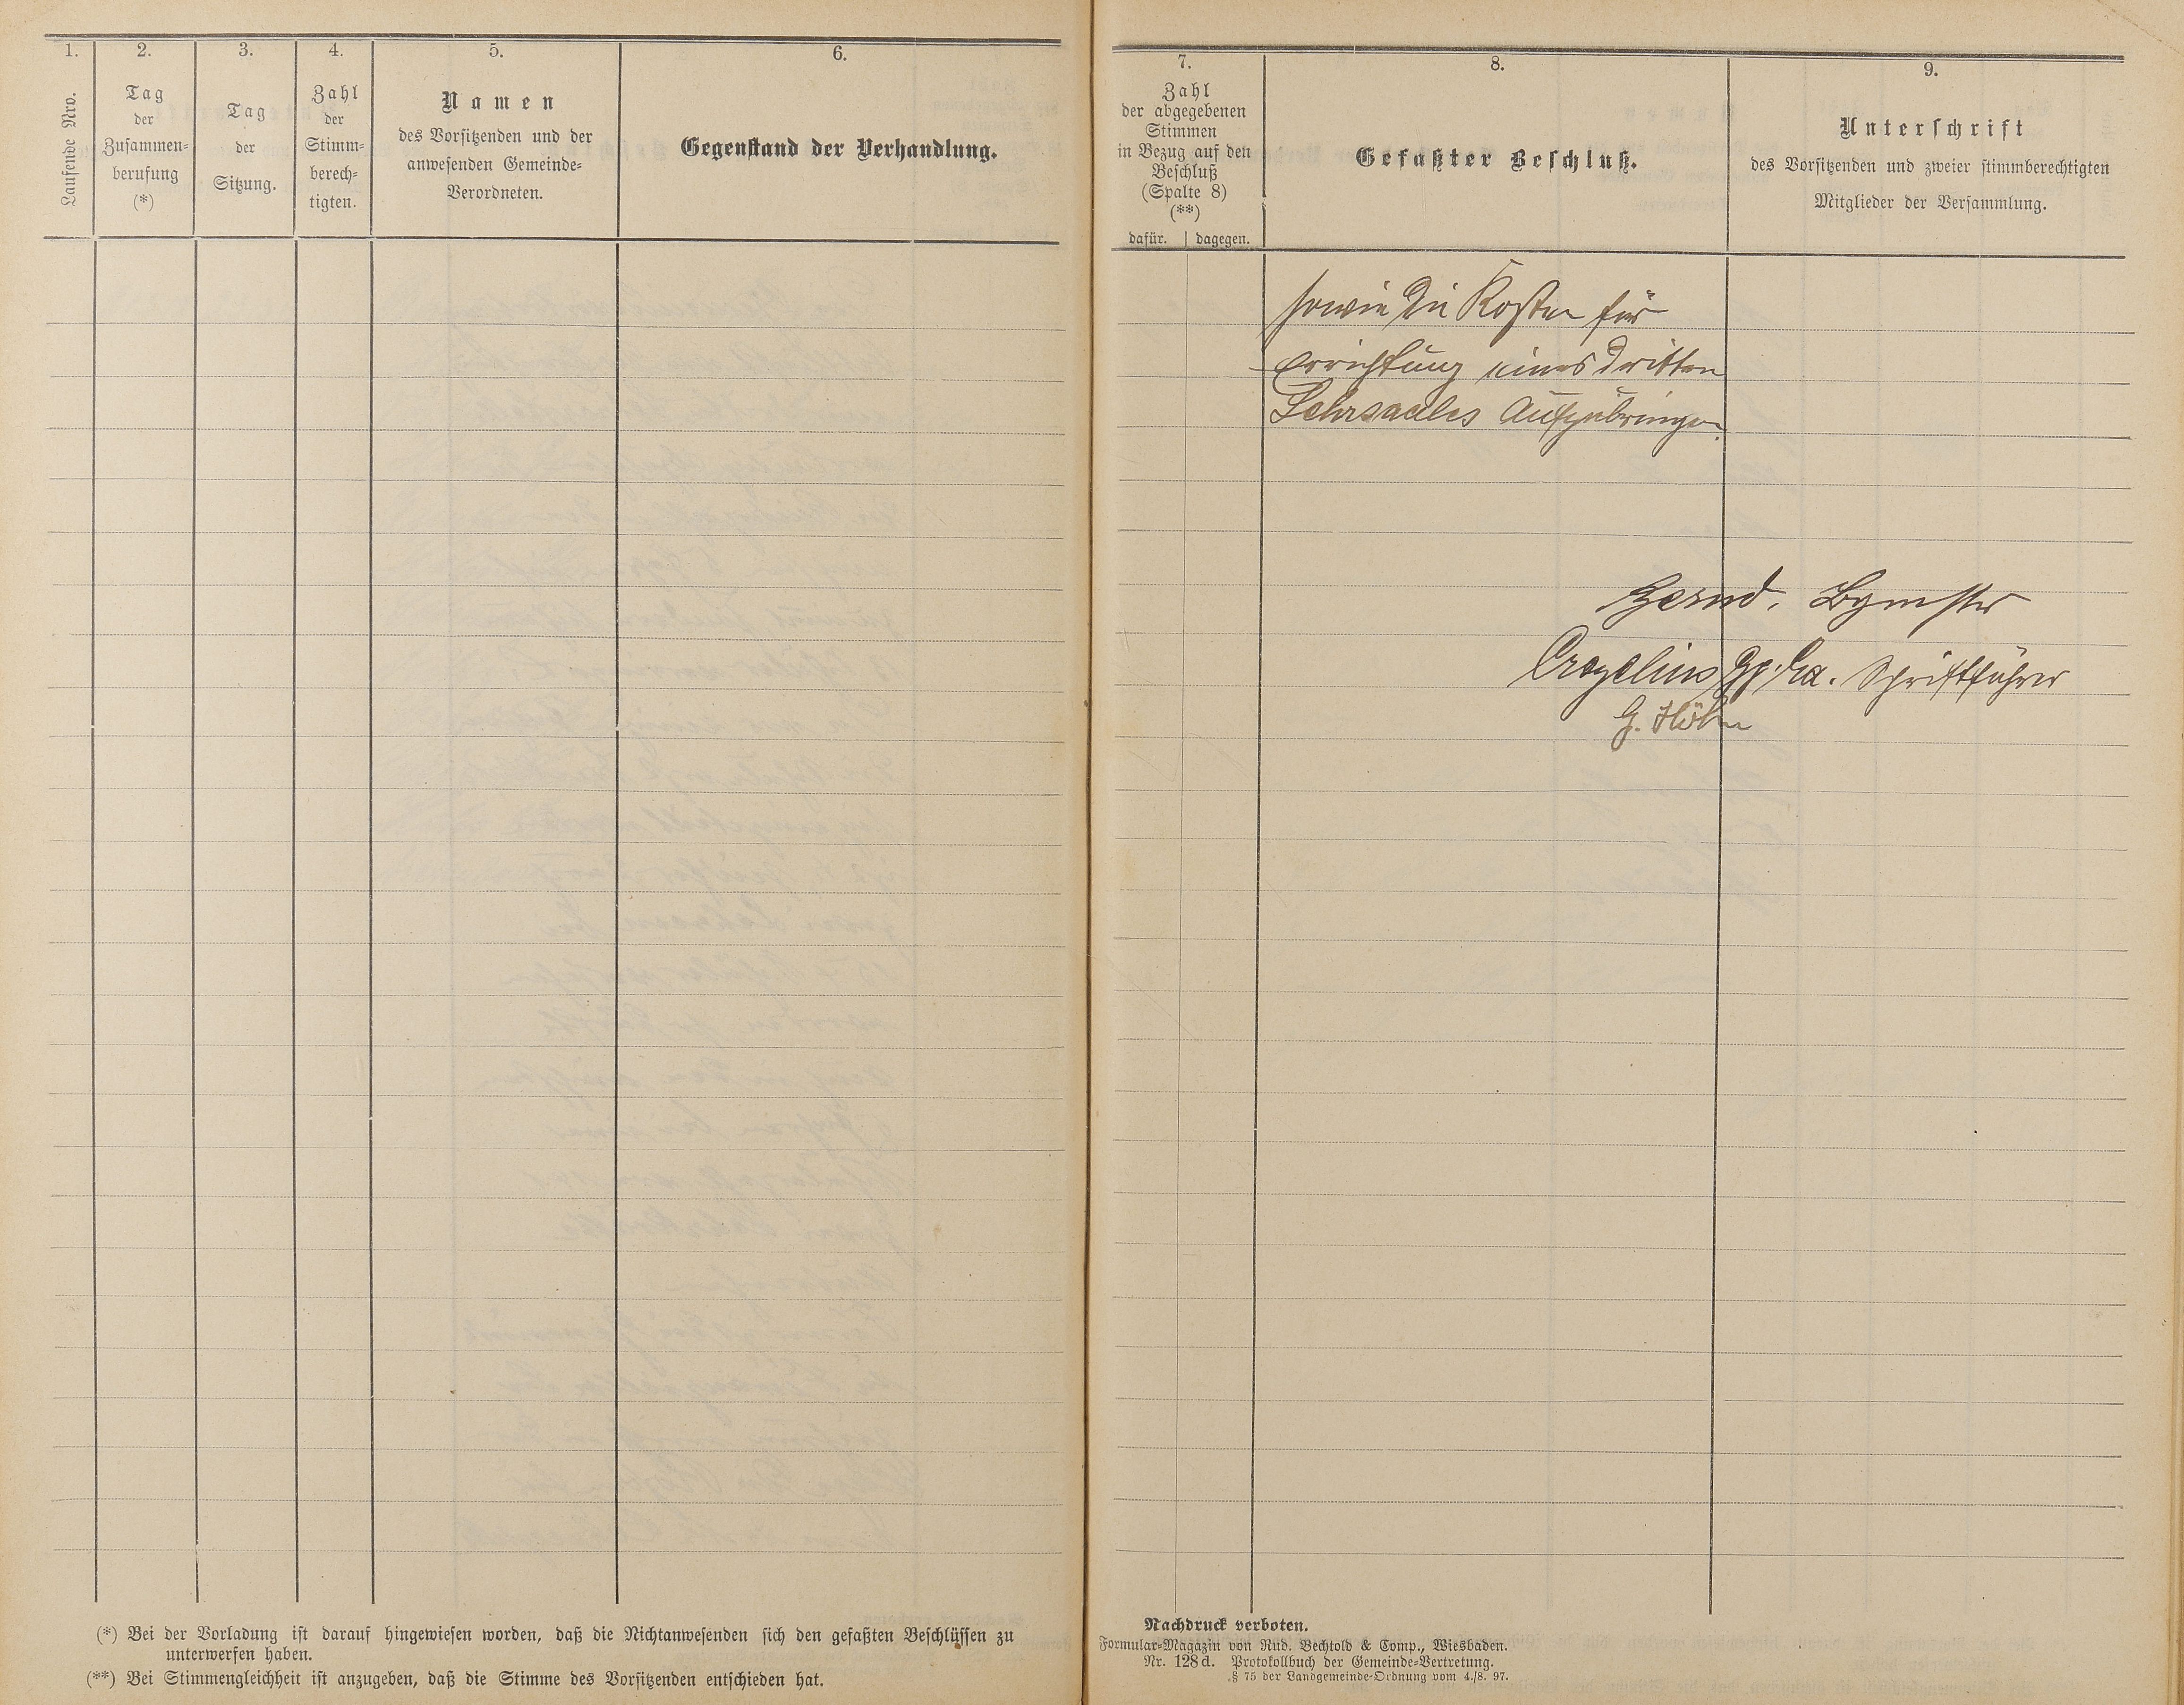 1.
Laufende Nro.
2.
Tag
der
Zusammen=
berufung
(*)
3.
Tag
der
Sitzung.
4.
Zahl
der
Stimm=
berech=
tigten.
5.
Namen
des Vorsitzenden und der
anwesenden Gemeinde=
Verordneten.
6.
Gegenstand der Verhandlung.
7.
Zahl
der abgegebenen
Stimmen
in Bezug auf den
Beschluß
(Spalte 8)
(**)
dafür. | dagegen.
8.
Gefaßter Beschluß.
9.
Unterschrift
des Vorsitzenden und zweier stimmberechtigten
Mitglieder der Versammlung.
sowie die Kosten für
Errichtung eines dritten
Lehrsaales aufzubringen.
Bgmstr
Schriftführer
G. Höhn
(*) Bei der Vorladung ist darauf hingewiesen worden, daß die Nichtanwesenden sich den gefaßten Beschlüssen zu
unterwerfen haben.
(**) Bei Stimmengleichheit ist anzugeben, daß die Stimme des Vorsitzenden entschieden hat.
Nachdruck verboten.
Formular=Magazin von Rud. Bechtold & Comp., Wiesbaden.
Nr. 128d. Protokollbuch der Gemeinde=Vertretung.
§ 75 der Landgemeinde=Ordnung vom 4./8. 97.